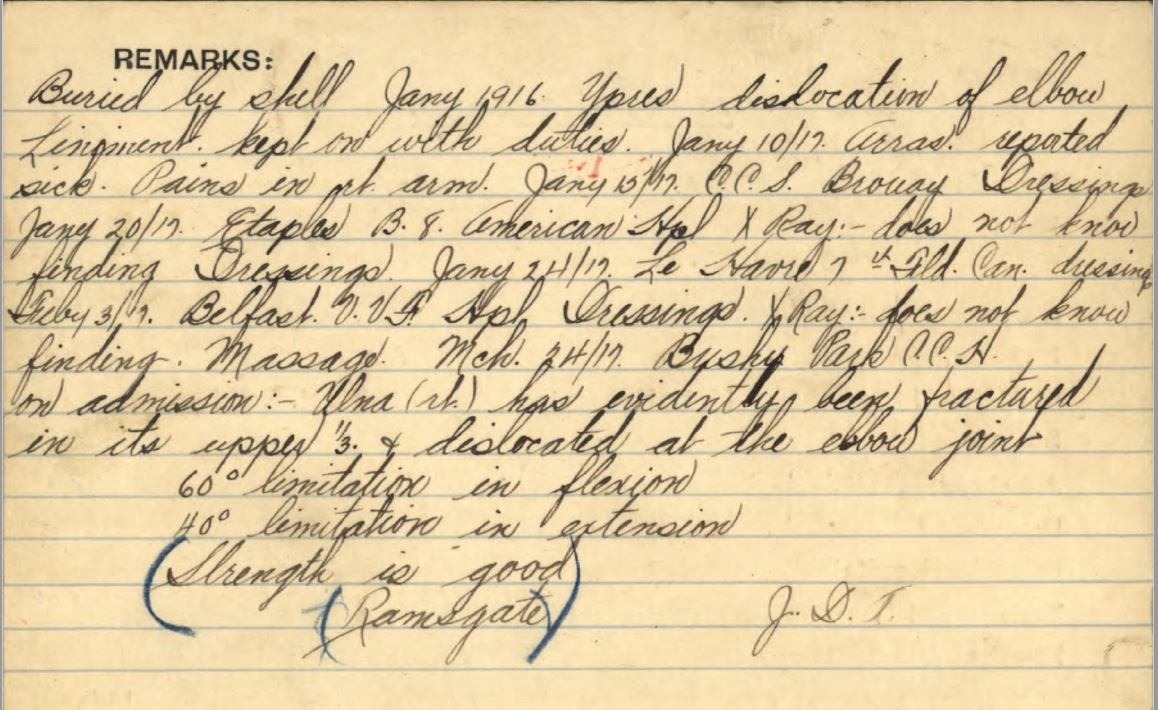 REMARKS:
Buried by shell Jany 1916 Ypres dislocation of elbow
Linement. kept on with duties. Jany 10/17. Arras. reported
sick. Pains in rt. arm. Jany 15/17. C.C.S. Brouay Dressings
Jany 20/17. Etaples B. 8. American Hpl X Ray:- does not know
finding Dressings. Jany 24/17. Le Havre 7th Fld. Can. dressings
Feby 3/17. Belfast. U.V.F. Hpl. Dressings. X Ray:- does not know
finding. Massage. Mch. 24/17. Bushy Park C.C.H.
on admission:- Ulna (rt.) has evidently been fractured
in its upper 1/3. & dislocated at the elbow joint
60° limitation in flexion
40° limitation in extension
(Strength is good)
(Ramsgate) J. D. T.